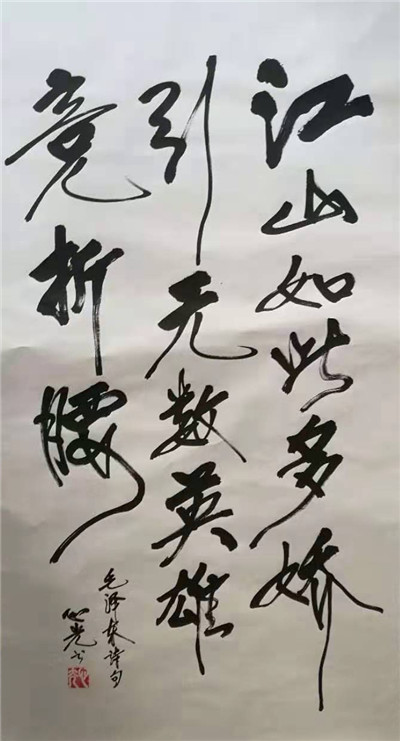 江山如此多娇
引无数英雄
竞折腰
毛泽东诗句
心光书